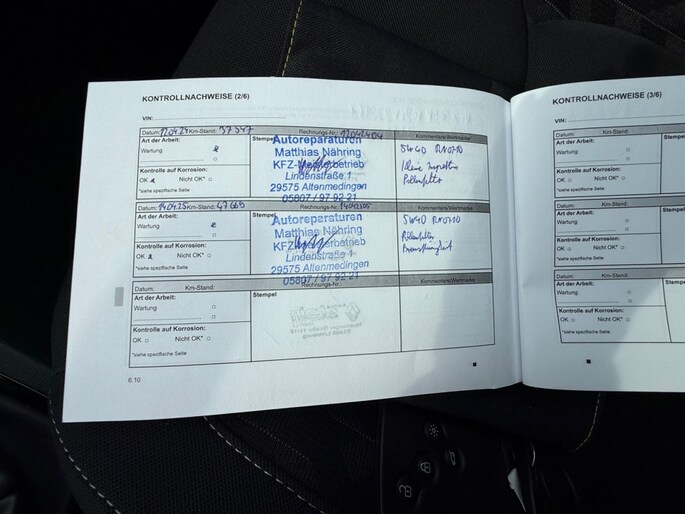 KONTROLLNACHWEISE (2/6)
VIN:
Datum: 12.04.24 Km-Stand: 37547 Rechnungs-Nr.: 12042404 Kommentare/Wertmarke
Art der Arbeit:
Wartung
Kontrolle auf Korrosion:
OK Nicht OK*
*siehe spezifische Seite
Stempel
Autoreparaturen
Matthias Nähring
KFZ-Meisterbetrieb
Lindenstraße 1
29575 Altenmedingen
05807 / 97 92 21
5W40 RN0710
kleine Inspektion
Pollenfilter
Datum: 14.04.25 Km-Stand: 47669 Rechnungs-Nr.: Kommentare/Wertmarke
Art der Arbeit:
Wartung
Kontrolle auf Korrosion:
OK Nicht OK*
*siehe spezifische Seite
Stempel
Autoreparaturen
Matthias Nähring
KFZ-Meisterbetrieb
Lindenstraße 1
29575 Altenmedingen
05807 / 97 92 21
5W40 RN0710
Pollenfilter
Bremsflüssigkeit
Datum: Km-Stand: Rechnungs-Nr.: Kommentare/Wertmarke
Art der Arbeit:
Wartung
Kontrolle auf Korrosion:
OK Nicht OK*
*siehe spezifische Seite
Stempel
6.10
KONTROLLNACHWEISE (3/6)
VIN:
Datum: Km-Stand:
Art der Arbeit:
Wartung
Kontrolle auf Korrosion:
OK Nicht OK*
*siehe spezifische Seite
Datum: Km-Stand:
Art der Arbeit:
Wartung
Kontrolle auf Korrosion:
OK Nicht OK*
*siehe spezifische Seite
Datum: Km-Stand:
Art der Arbeit:
Wartung
Kontrolle auf Korrosion:
OK Nicht OK*
*siehe spezifische Seite